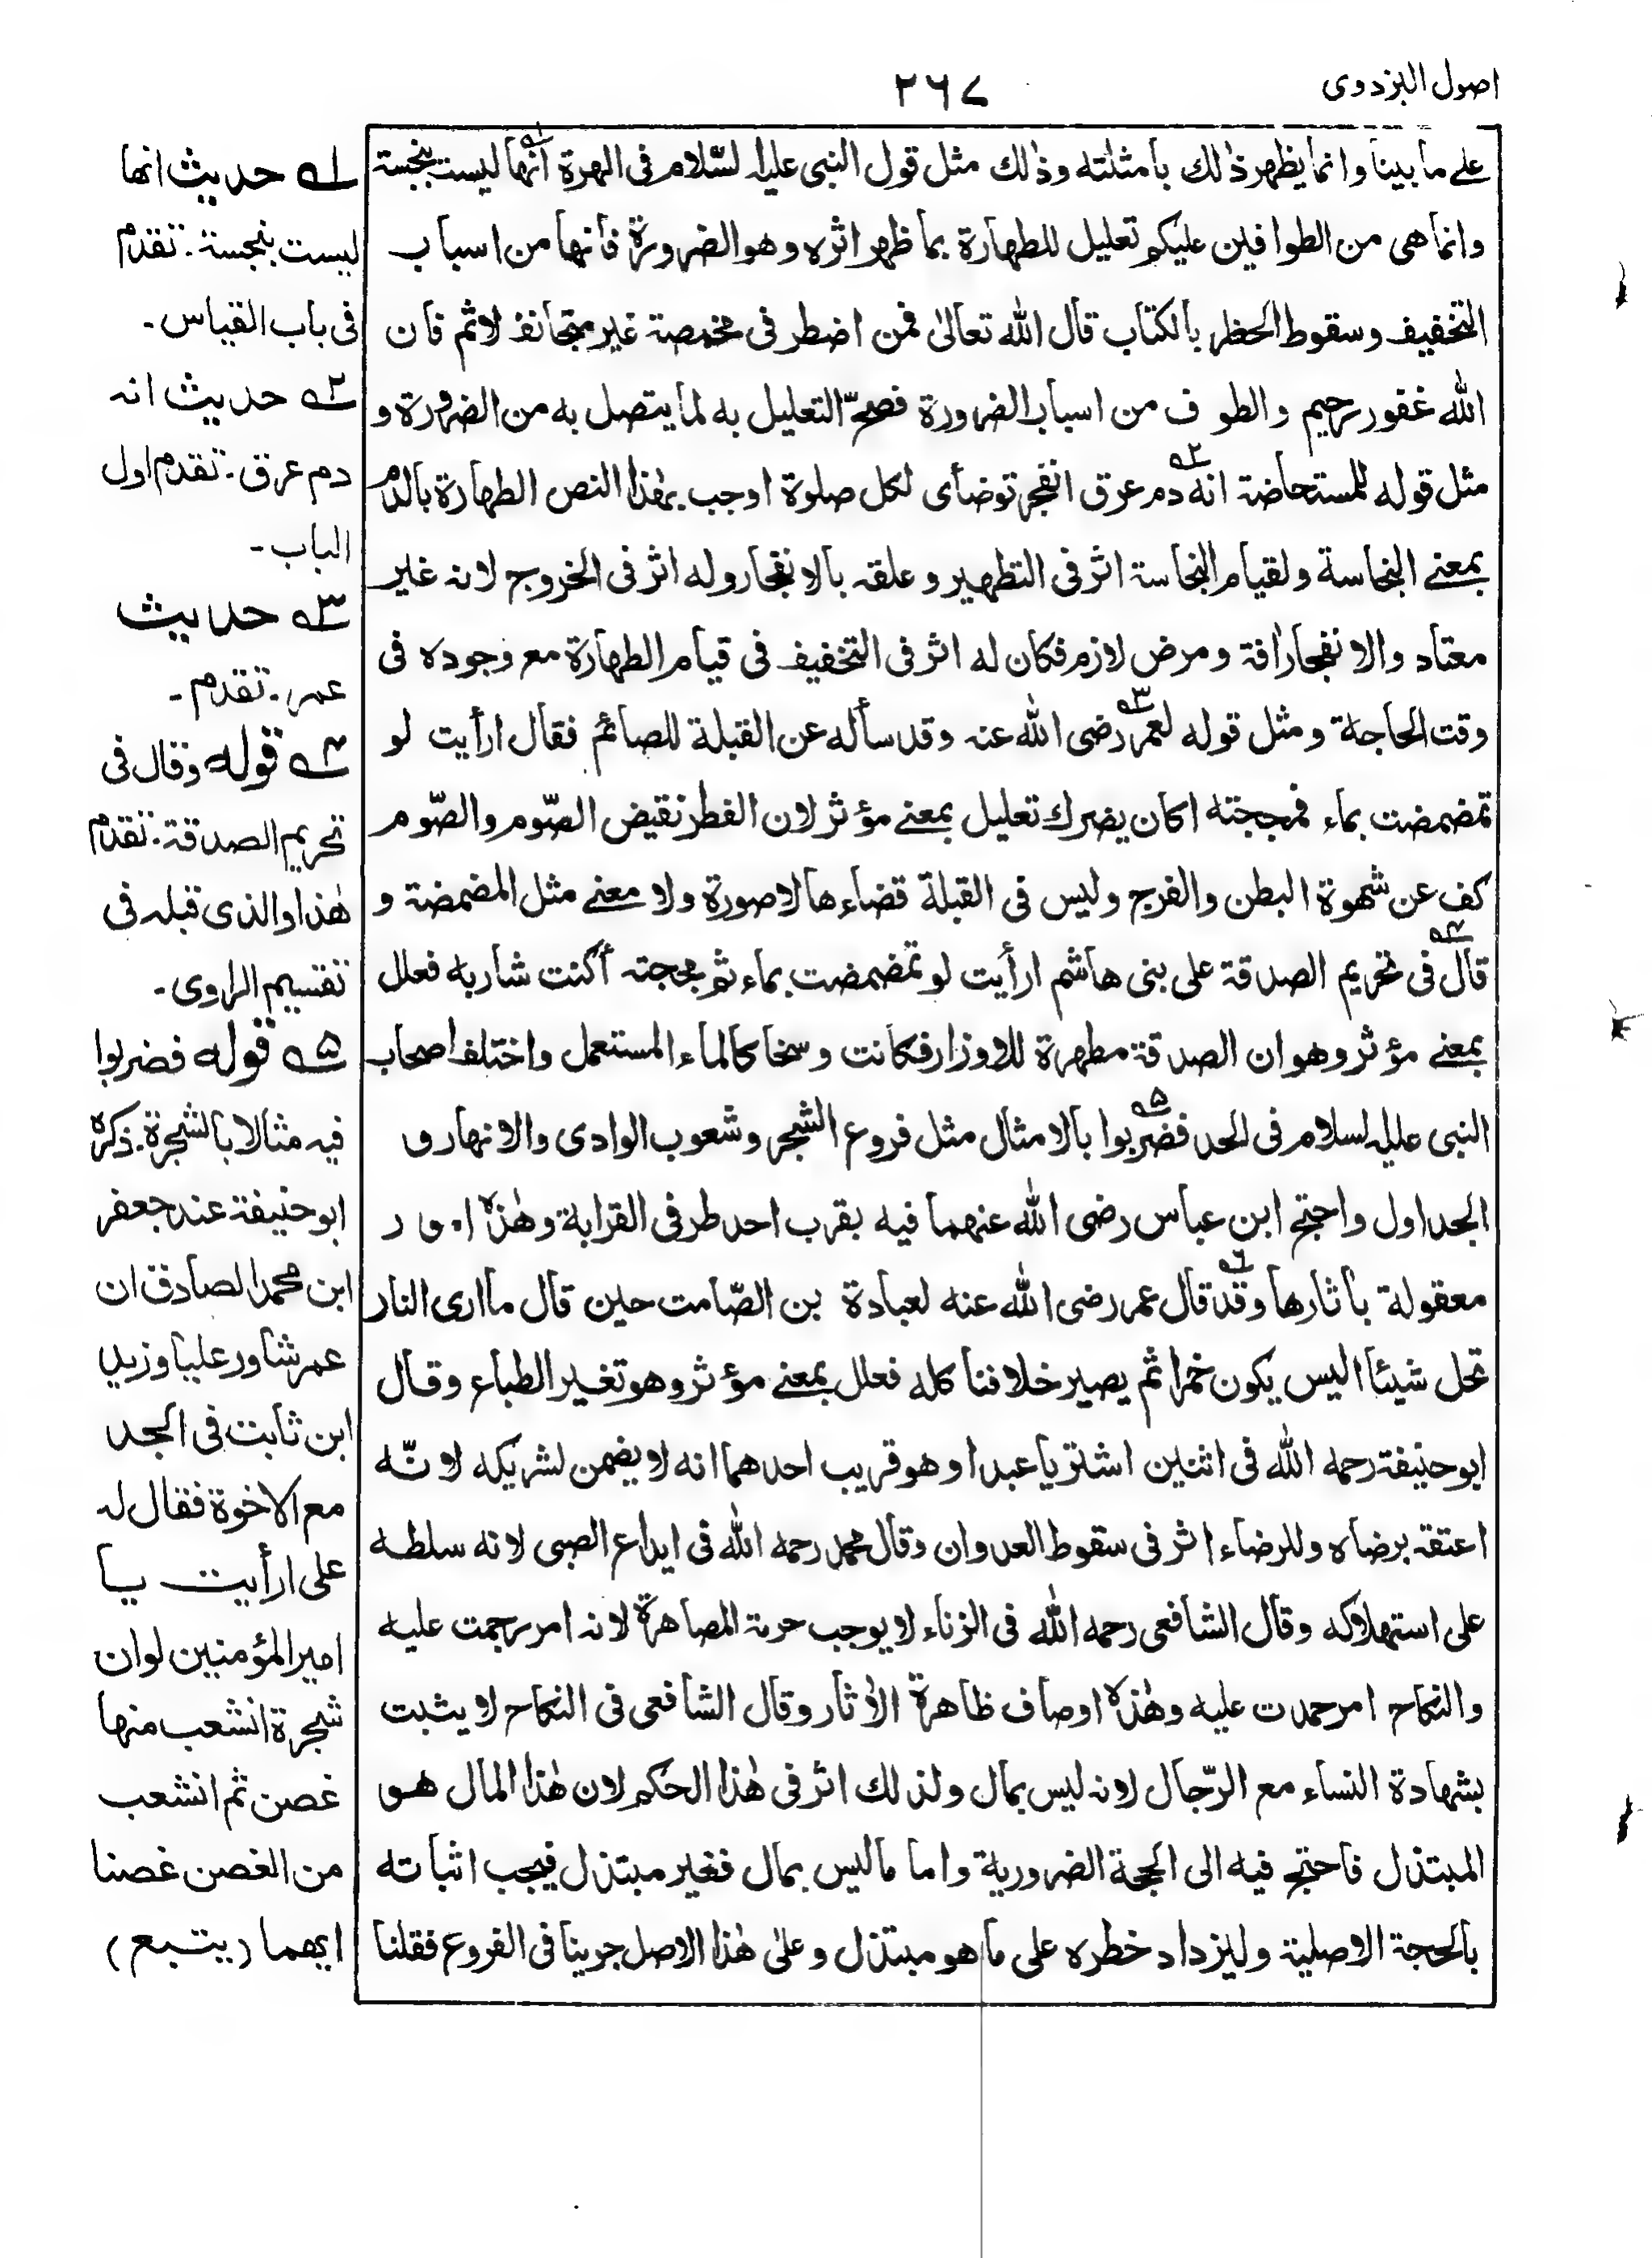 اصول البزدوی
۲۶۷
علے ما بینا وانما یظهر ذٰلك بامثلته وذٰلك مثل قول النبی علیہ السّلام فی الهرة انّها لیست بنجسة
وانما هی من الطوافین علیکم تعلیل للطهارة بما ظهر اثره وهو الضرورة فانها من اسباب
التخفیف وسقوط الحظر بالکتاب قال اللّٰه تعالیٰ فمن اضطر فی مخمصة غیر متجانف لاثم فان
اللّٰه غفور رحیم والطوف من اسباب الضرورة فصحّ التعلیل به لما یتصل به من الضرورة و
مثل قوله للمستحاضة انه دم عرق انفجر توضأی لکل صلوة اوجب بهٰذا النص الطهارة بالدم
بمعنے النجاسة ولقیام النجاسة اثر فی التطهیر وعلقه بالانفجار وله اثر فی الخروج لانه غیر
معتاد والانفجار اٰفة ومرض لازم فکان له اثر فی التخفیف فی قیام الطهارة مع وجوده فی
وقت الحاجة ومثل قوله لعمر رضی اللّٰه عنه وقد سأله عن القبلة للصائم فقال ارأیت لو
تمضمضت بماء فمججته اکان یضرك تعلیل بمعنے مؤثر لان الفطر نقیض الصّوم والصّوم
کف عن شهوة البطن والفرج ولیس فی القبلة قضاءها لا صورة ولا معنے مثل المضمضة و
قال فی تحریم الصدقة علی بنی هاشم ارأیت لو تمضمضت بماء ثم مججته أکنت شاربه فعلل
بمعنے مؤثر وهو ان الصدقة مطهرة للاوزار فکانت وسخا کالماء المستعمل واختلف اصحاب
النبی علیہ السلام فی الجد فضربوا بالامثال مثل فروع الشجر وشعوب الوادی والانهار و
الجداول واحتج ابن عباس رضی اللّٰه عنهما فیه بقرب احد طرفی القرابة وهٰذه امور
معقولة باٰثارها وقد قال عمر رضی اللّٰه عنه لعبادة بن الصّامت حین قال ما اری النار
تحل شیئا الیس یکون خمرا ثم یصیر خلا فنا کله فعلل بمعنے مؤثر وهو تغیر الطباع وقال
ابو حنیفة رحمه اللّٰه فی اثنین اشتریا عبدا وهو قریب احدهما انه لا یضمن لشریکه لانّه
اعتقه برضاه وللرضاء اثر فی سقوط العدوان وقال محمد رحمه اللّٰه فی ایداع الصبی لانه سلطه
علی استهلاکه وقال الشافعی رحمه اللّٰه فی الزناء لا یوجب حرمة المصاهرة لانه امر رجمت علیه
والنکاح امر حمدت علیه وهٰذه اوصاف ظاهرة الاٰثار وقال الشافعی فی النکاح لا یثبت
بشهادة النساء مع الرّجال لانه لیس بمال ولذلك اثر فی هٰذا الحکم لان هٰذا المال هو
المبتذل فاحتج فیه الی الحجة الضروریة واما ما لیس بمال فغیر مبتذل فیجب اثباته
بالحجة الاصلیة ولیزداد خطره علی ما هو مبتذل وعلیٰ هٰذا الاصل جرینا فی الفروع فقلنا
۱ حدیث انها
لیست بنجسة. تقدم
فی باب القیاس۔
۲ حدیث انه
دم عرق. تقدم اول
الباب۔
۳ حدیث
عمر. تقدم۔
۴ قوله وقال فی
تحریم الصدقة. تقدم
هٰذا والذی قبله فی
تقسیم الراوی۔
۵ قوله فضربوا
فیه مثالا بالشجرة. ذکره
ابو حنیفة عند جعفر
ابن محمد الصادق ان
عمر شاور علیا وزید
ابن ثابت فی الجد
مع الاخوة فقال له
علی ارأیت یا
امیر المؤمنین لو ان
شجرة انشعب منها
غصن ثم انشعب
من الغصن غصنا
ایهما (یتبع)